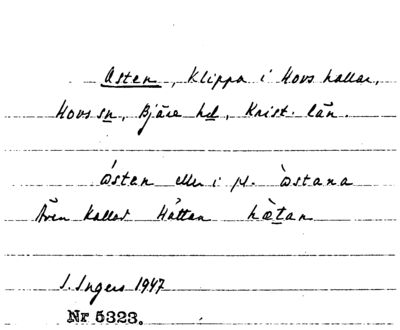 Asten, Klippa i Hovs hallar,
Hovs sn, Bjäre hd, Krist. län.
ásten eller i pl. àstana
Även kallad Hättan hæ̀tan
I. Ingers 1947
Nr 5323.